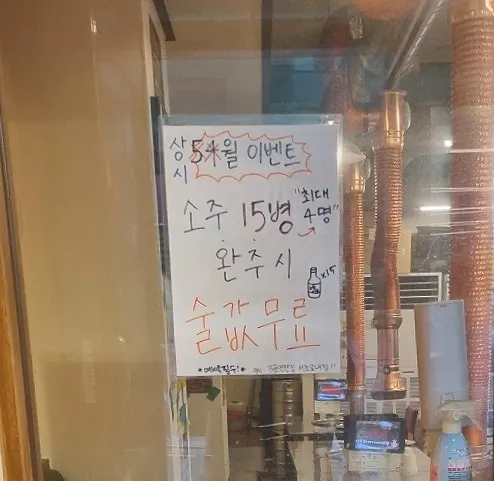 상시 5월 이벤트
소주 15병 "최대 4명"
완주 시
x15
술값 무료
*예약필수!*